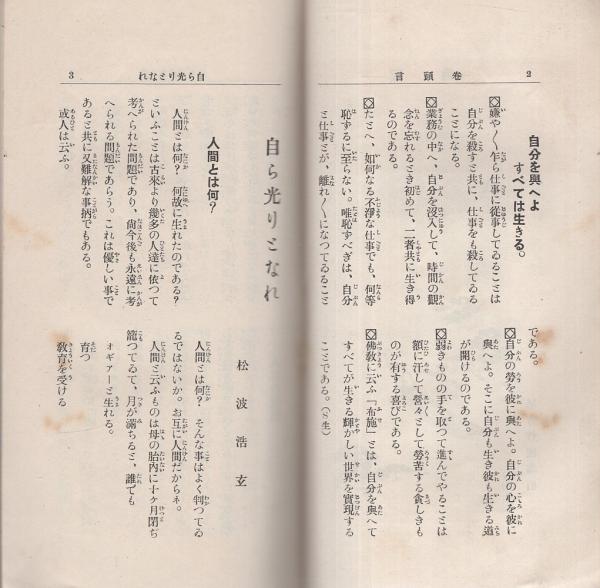 2
言頭卷
自分を與へよ
すべては生きる。
嫌や〱乍ら仕事に從事してゐることは
自分を殺すと共に、仕事をも殺してゐる
ことになる。
業務の中へ、自分を沒入して、時間の觀
念を忘れるとき初めて、二者共に生き得
るのである。
たとへ、如何なる不淨な仕事でも、何等
恥するに至らない。唯恥すべきは、自分
と仕事とが、離れ〱になつてゐること
である。
自分の勞を彼に與へよ。自分の心を彼に
與へよ。そこに自分も生き彼も生きる道
が開けるのである。
弱きものの手を取つて進んでやることは
額に汗して營々として勞苦する貧しきも
のが有する喜びである。
佛敎に云ふ『布施』とは、自分を與へて
すべてが生きる輝かしい世界を實現する
ことである。(〱生)
れなとり光ら自
3
自ら光りとなれ
松波浩玄
人間とは何?
人間とは何? 何故に生れたのである?
といふことは古來より幾多の人達に依つて
考へられた問題であり、尙今後も永遠に考
へられる問題であらう。これは優しい事で
あると共に又難解な事柄でもある。
或人は云ふ。
人間とは何? そんな事はよく判つてゐ
るではないか。お互に人間だからネ。
人間と云ふものは母の胎內に十ケ月閉ぢ
籠つてゐて、月が滿ちると、誰でも
オギアーと生れる。
育つ
敎育を受ける